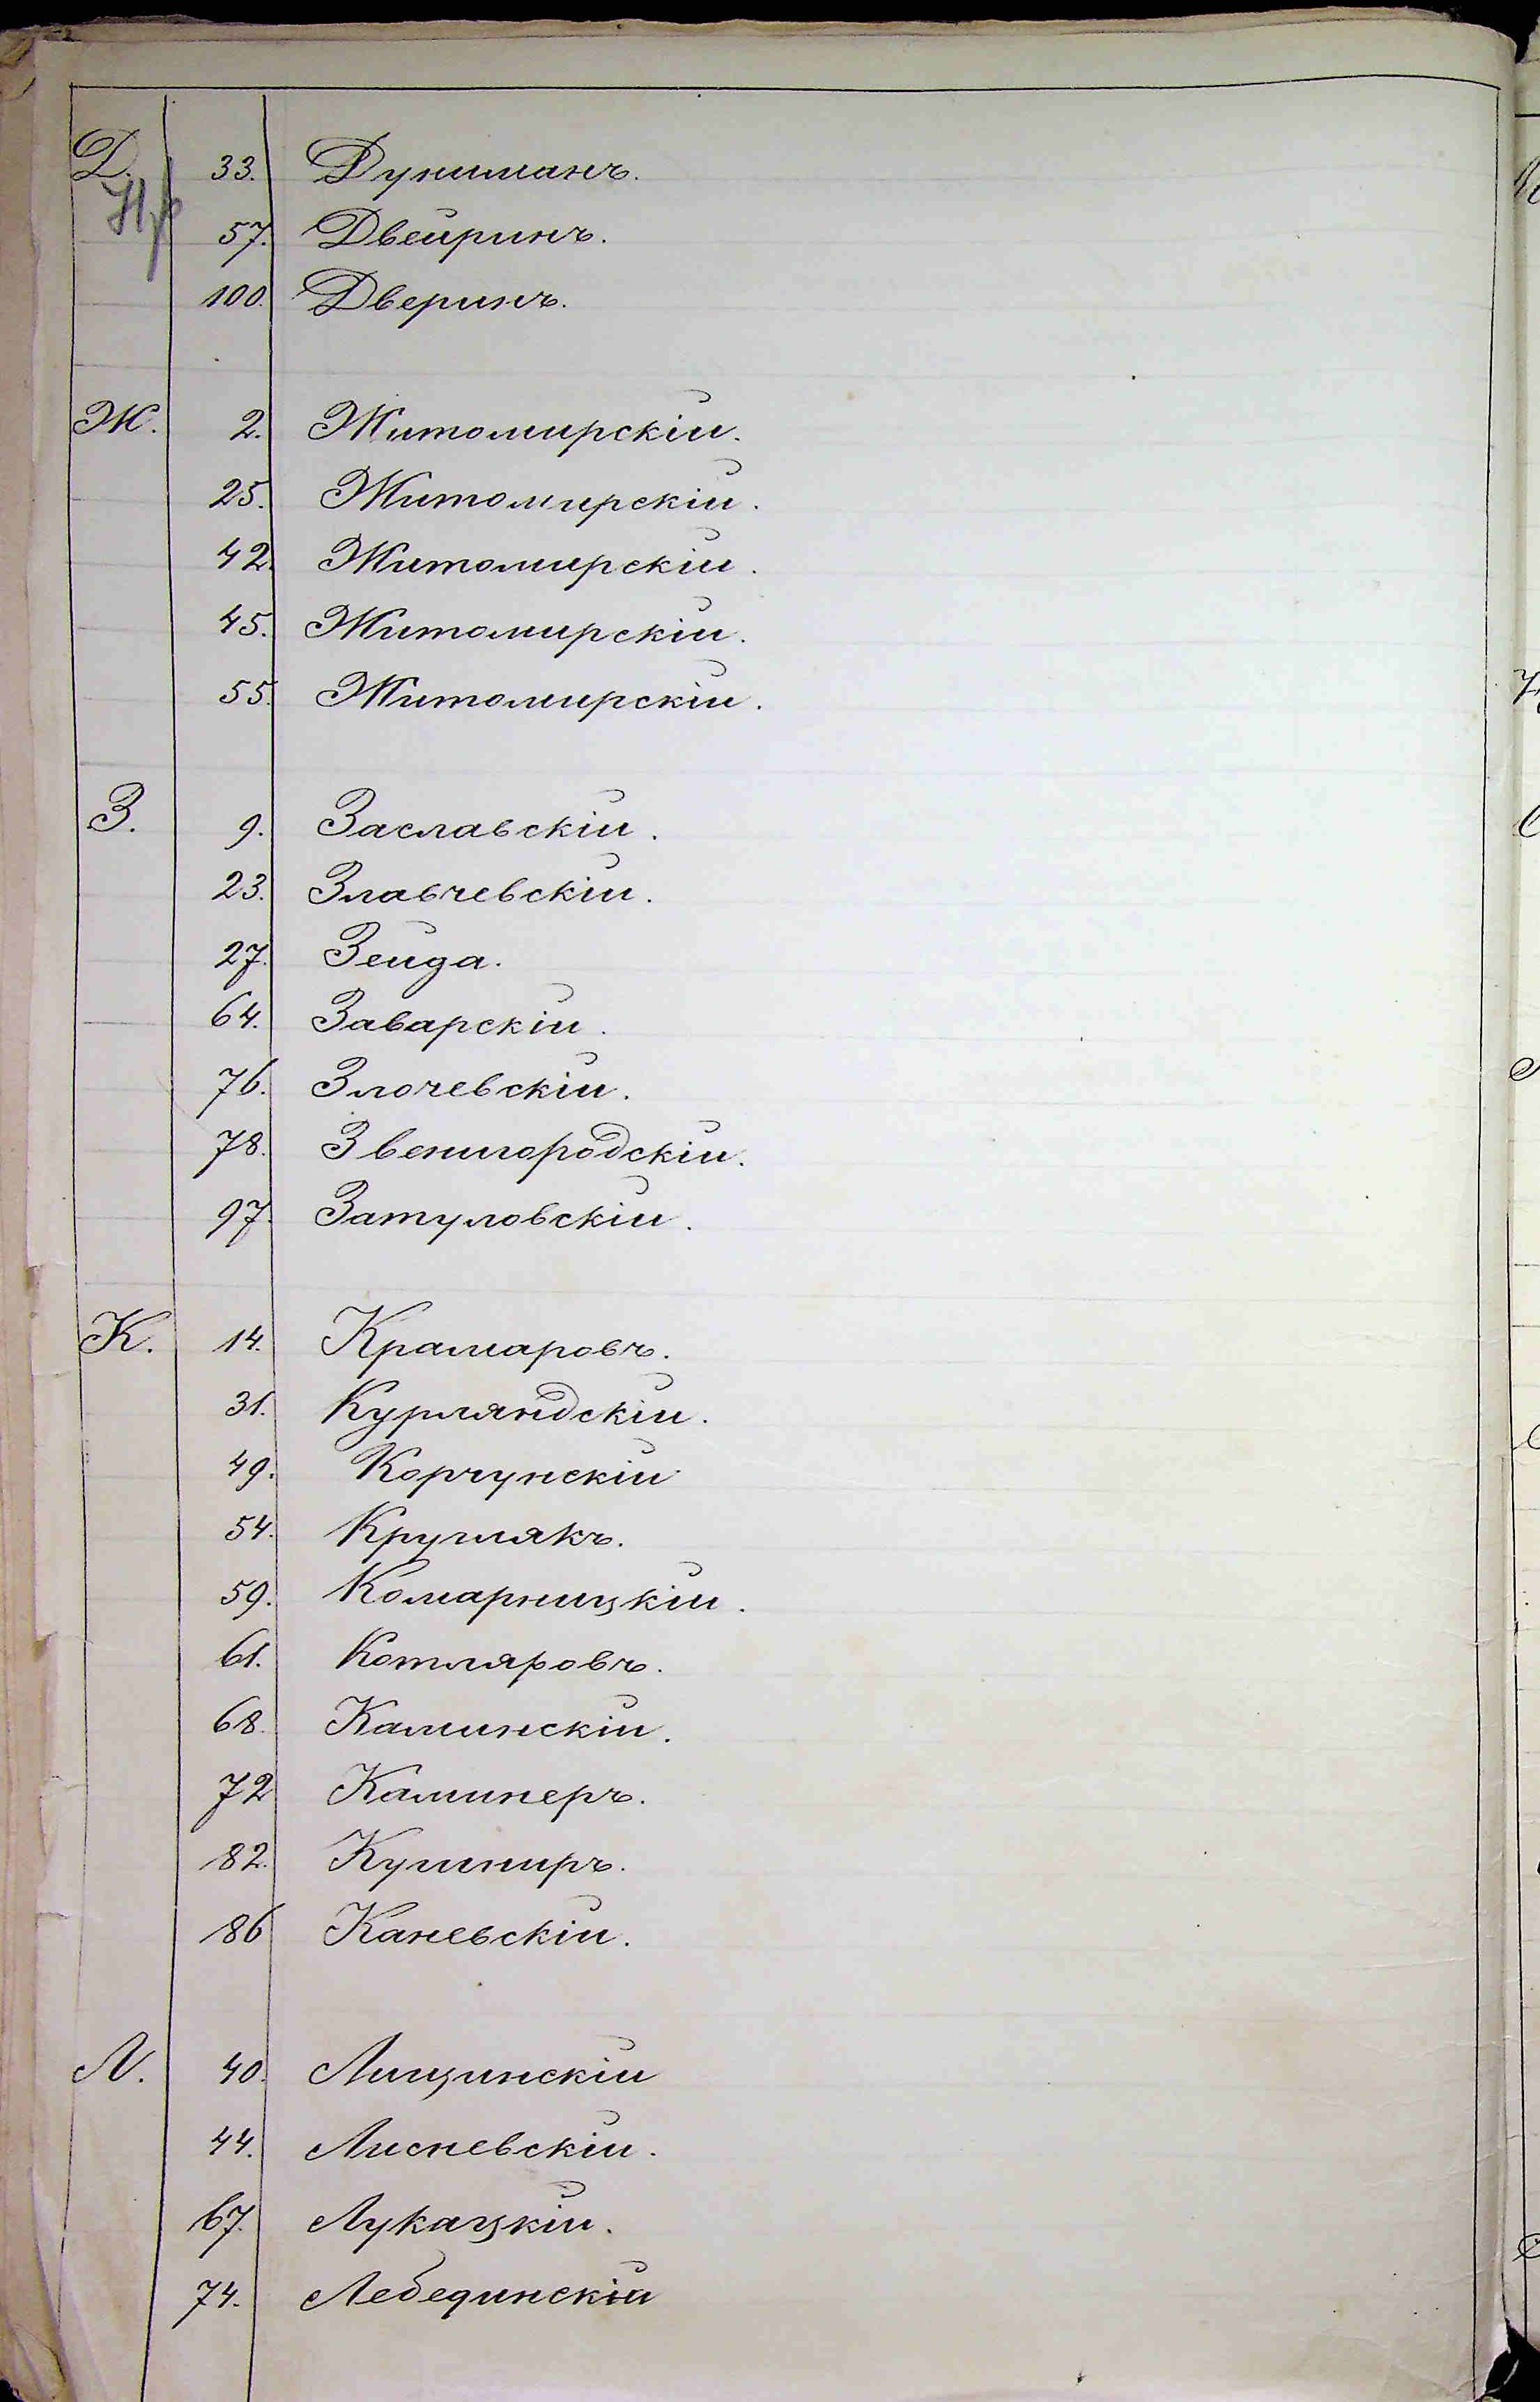 Д. 33. Дуниманъ.
57. Двейринъ.
100. Дверинъ.
Ж. 2. Житомирскій.
25. Житомирскій.
42. Житомирскій.
45. Житомирскій.
55. Житомирскій.
З. 9. Заславскій.
23. Злавчевскій.
27. Зейда.
64. Заварскій.
76. Злочевскій.
78. Звенигородскій.
97. Затуловскій.
К. 14. Крамаровъ.
31. Курляндскій.
49. Корчунскій
54. Круглякъ.
59. Комарницкій.
61. Котляровъ.
68. Каминскій.
72 Каминеръ.
82. Кушниръ.
86 Каневскій.
Л. 40. Лищинскій
44. Лисневскій.
67. Лукацкій.
74. Лебединскій